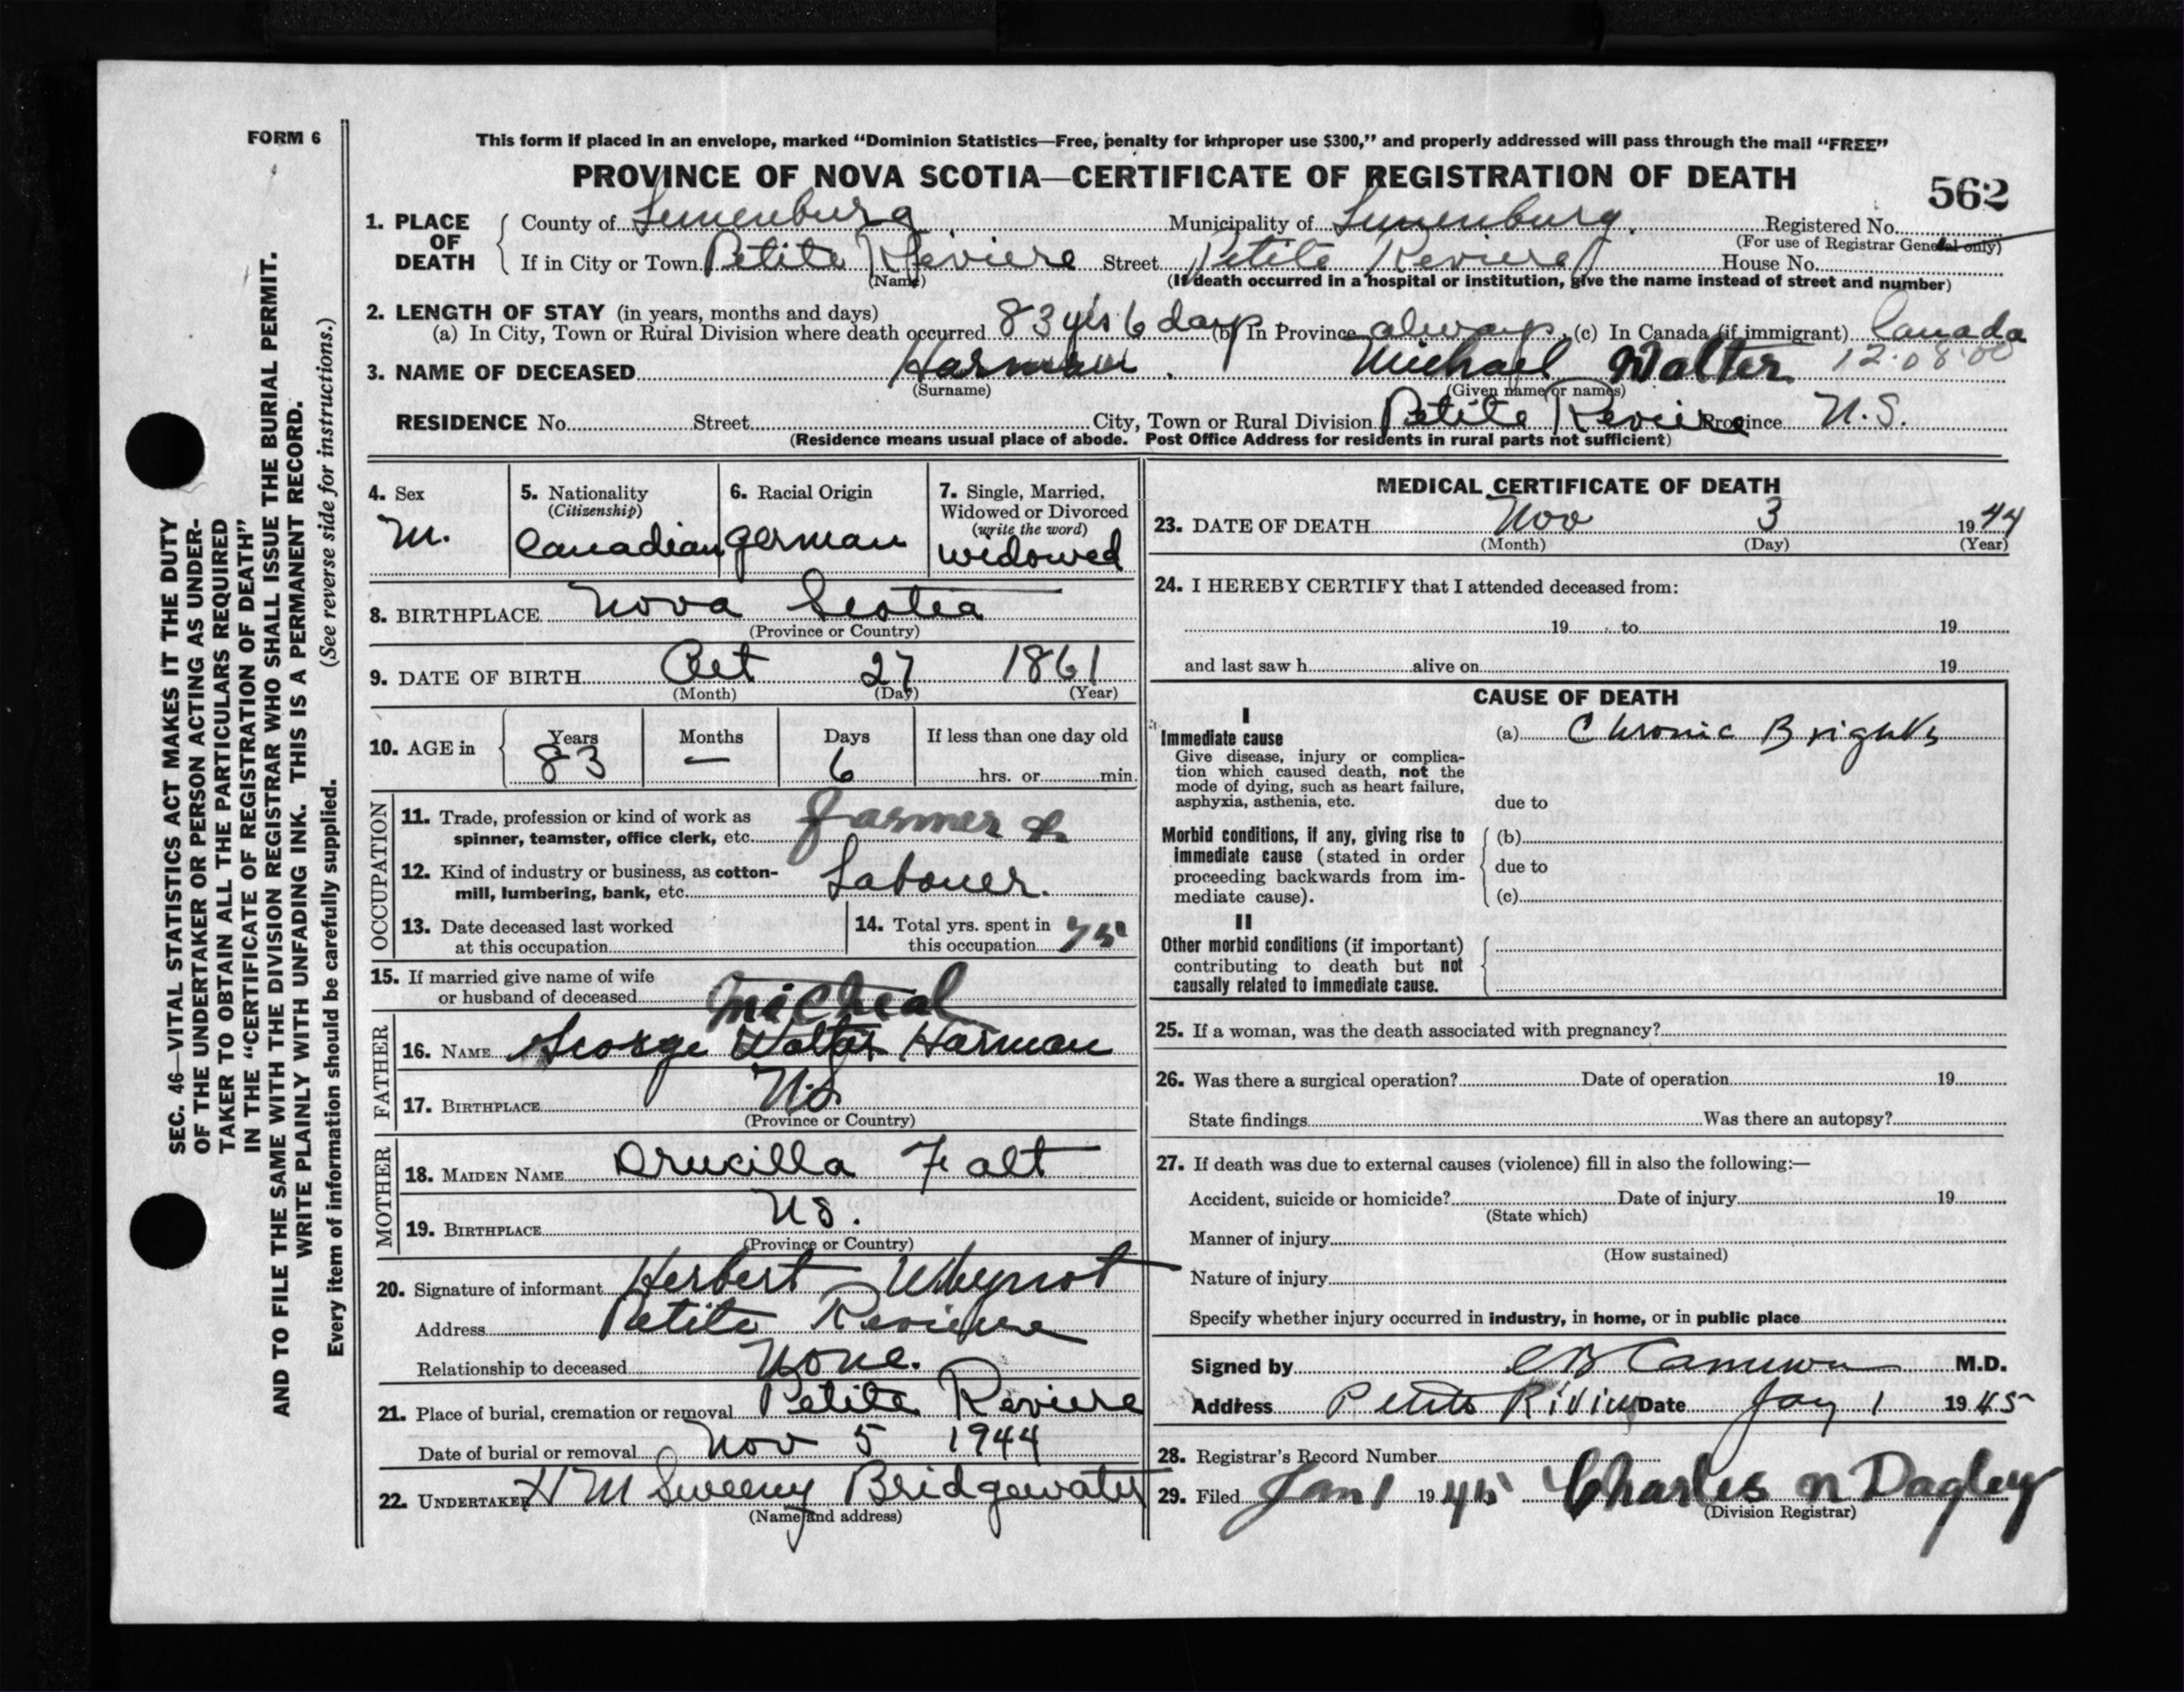 FORM 6
This form if placed in an envelope, marked “Dominion Statistics—Free, penalty for improper use $300,” and properly addressed will pass through the mail “FREE”
PROVINCE OF NOVA SCOTIA—CERTIFICATE OF REGISTRATION OF DEATH
562
1. PLACE OF DEATH
County of Lunenburg Municipality of Lunenburg. Registered No.
(For use of Registrar General only)
If in City or Town Petite Reviere Street Petite Reviere House No.
(Name) (If death occurred in a hospital or institution, give the name instead of street and number)
2. LENGTH OF STAY (in years, months and days)
(a) In City, Town or Rural Division where death occurred 83 yrs 6 days (b) In Province always (c) In Canada (if immigrant) Canada
3. NAME OF DECEASED Harman. Michael Walter 12.08.00
(Surname) (Given name or names)
RESIDENCE No. Street City, Town or Rural Division Petite Reviere Province N.S.
(Residence means usual place of abode. Post Office Address for residents in rural parts not sufficient)
SEC. 46—VITAL STATISTICS ACT MAKES IT THE DUTY
OF THE UNDERTAKER OR PERSON ACTING AS UNDER-
TAKER TO OBTAIN ALL THE PARTICULARS REQUIRED
IN THE “CERTIFICATE OF REGISTRATION OF DEATH”
AND TO FILE THE SAME WITH THE DIVISION REGISTRAR WHO SHALL ISSUE THE BURIAL PERMIT.
WRITE PLAINLY WITH UNFADING INK. THIS IS A PERMANENT RECORD.
Every item of information should be carefully supplied. (See reverse side for instructions.)
4. Sex
M.
5. Nationality
(Citizenship)
Canadian
6. Racial Origin
German
7. Single, Married,
Widowed or Divorced
(write the word)
widowed
8. BIRTHPLACE Nova Scotia
(Province or Country)
9. DATE OF BIRTH Oct 27 1861
(Month) (Day) (Year)
10. AGE in
Years Months Days If less than one day old
83 — 6 hrs. or min.
OCCUPATION
11. Trade, profession or kind of work as
spinner, teamster, office clerk, etc. Farmer &
12. Kind of industry or business, as cotton-
mill, lumbering, bank, etc. Labouer.
13. Date deceased last worked
at this occupation
14. Total yrs. spent in
this occupation 75
15. If married give name of wife
or husband of deceased
Micheal
FATHER
16. NAME George Walter Harman
17. BIRTHPLACE N.S
(Province or Country)
MOTHER
18. MAIDEN NAME Drucilla Falt
19. BIRTHPLACE NS.
(Province or Country)
20. Signature of informant Herbert Whynot
Address Petite Reviere
Relationship to deceased None.
21. Place of burial, cremation or removal Petite Reviere
Date of burial or removal Nov 5 1944
22. UNDERTAKER H M Sweeny Bridgewater
(Name and address)
MEDICAL CERTIFICATE OF DEATH
23. DATE OF DEATH Nov 3 1944
(Month) (Day) (Year)
24. I HEREBY CERTIFY that I attended deceased from:
19 to 19
and last saw h alive on 19
CAUSE OF DEATH
I
Immediate cause
Give disease, injury or complica-
tion which caused death, not the
mode of dying, such as heart failure,
asphyxia, asthenia, etc.
(a) Chronic Brights
due to
Morbid conditions, if any, giving rise to
immediate cause (stated in order
proceeding backwards from im-
mediate cause).
(b)
due to
(c)
II
Other morbid conditions (if important)
contributing to death but not
causally related to immediate cause.
25. If a woman, was the death associated with pregnancy?
26. Was there a surgical operation? Date of operation 19
State findings Was there an autopsy?
27. If death was due to external causes (violence) fill in also the following:—
Accident, suicide or homicide? Date of injury 19
(State which)
Manner of injury
(How sustained)
Nature of injury
Specify whether injury occurred in industry, in home, or in public place
Signed by C B Cameron M.D.
Address Petite Riviere Date Jay 1 1945
28. Registrar's Record Number
29. Filed Jan 1 1945 Charles N Dagley
(Division Registrar)